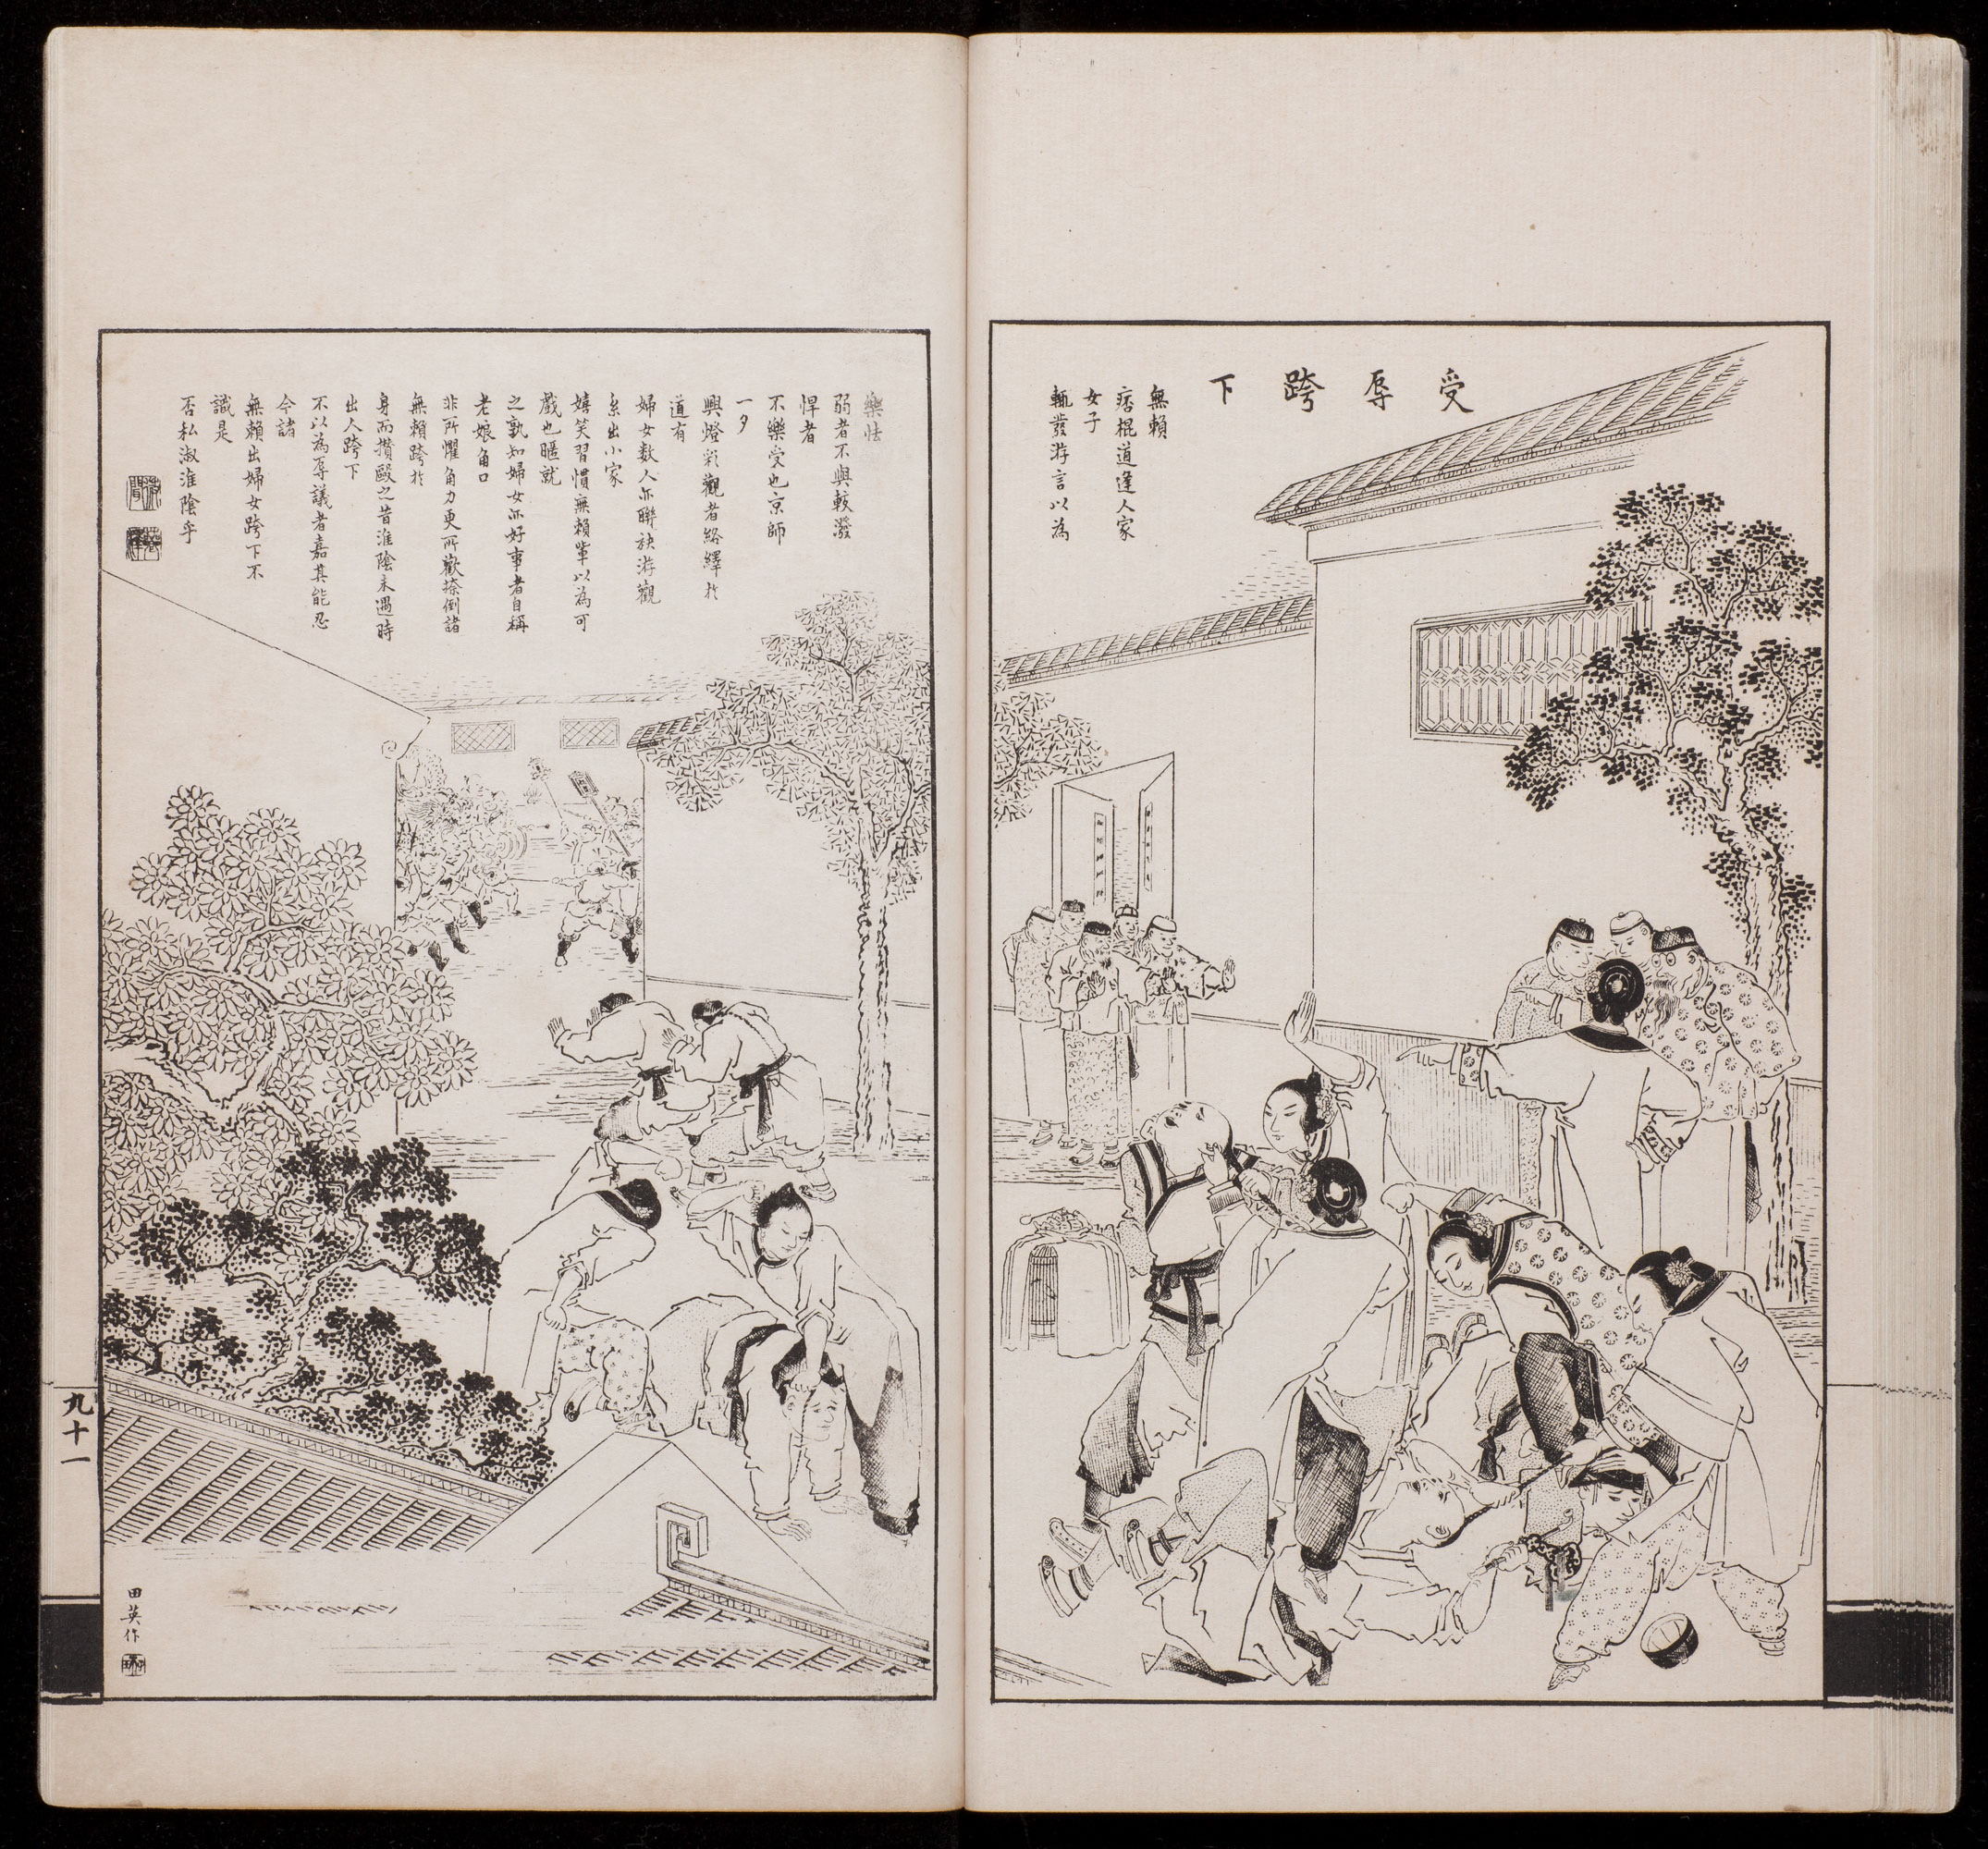 受辱跨下
無賴
痞棍道逢人家
女子
輒發游言以為
樂怯
弱者不與較潑
悍者
不樂受也京師
一夕
興燈彩觀者絡繹於
道有
婦女數人亦聯袂游觀
系出小家
嬉笑習慣無賴輩以為可
戲也暱就
之孰知婦女亦好事者自稱
老娘角口
非所懼角力更所歡捺倒諸
無賴跨於
身而攢毆之昔淮陰未遇時
出人跨下
不以為辱議者嘉其能忍
今諸
無賴出婦女跨下不
識是
否私淑淮陰乎
田英作
九十一